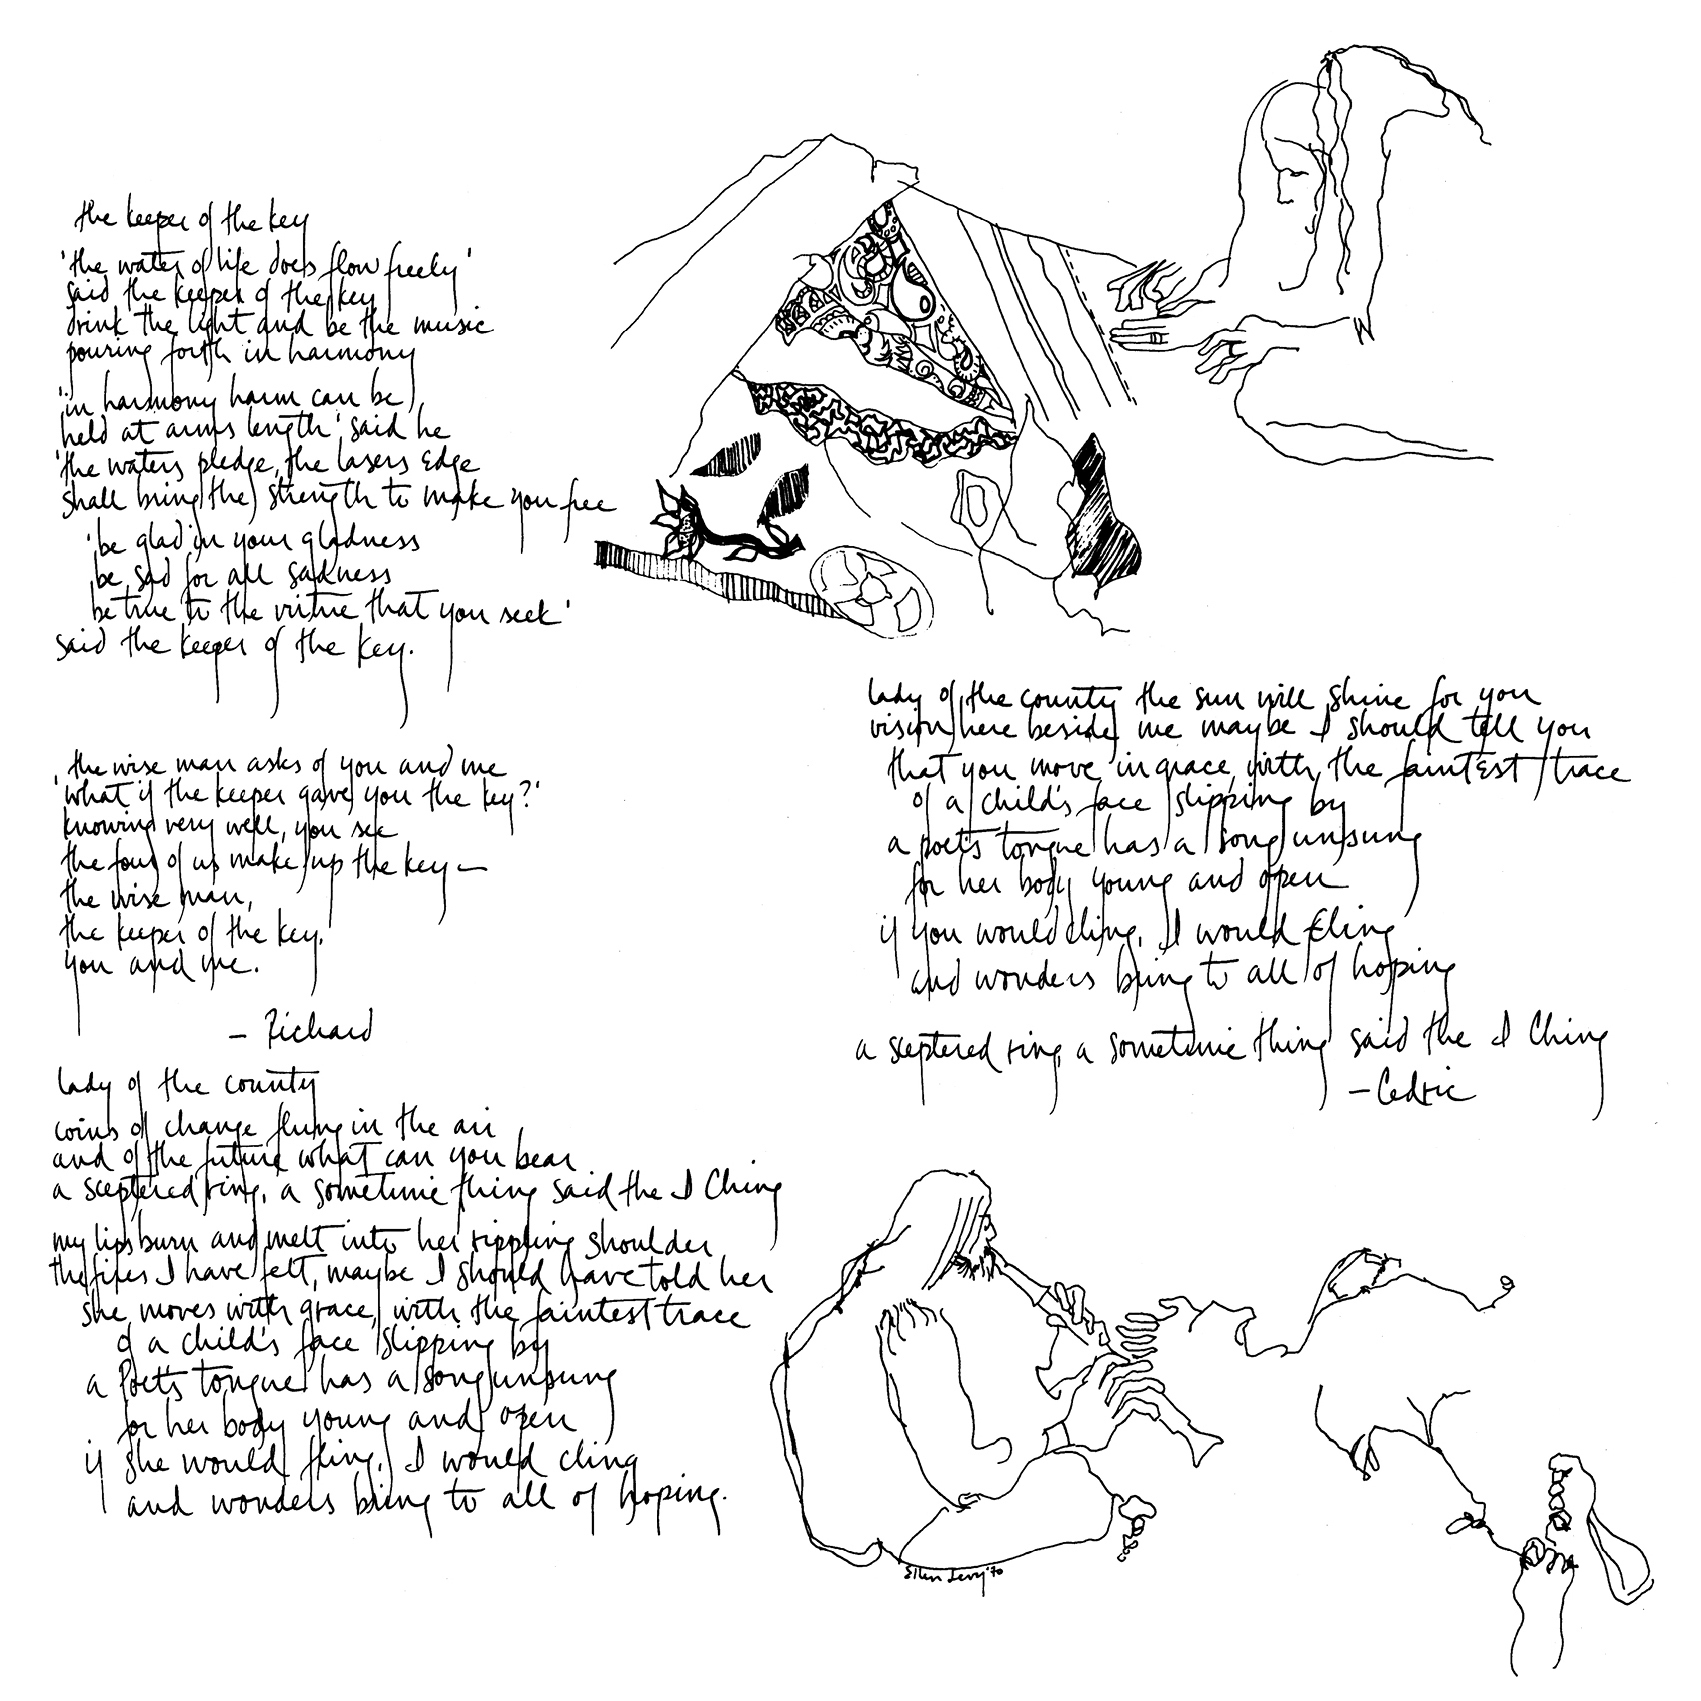 the keeper of the key
'the water of life does flow freely'
said the keeper of the key
drink the light and be the music
pouring forth in harmony
'in harmony harm can be
held at arms length' said he
'the waters pledge, the lasers edge
shall bring (the) strength to make you free
'be glad in your gladness
be sad for all sadness
be true to the virtue that you seek'
said the keeper of the key.
the wise man asks of you and me
'what if the keeper gave you the key?'
knowing very well, you see
the four of us make up the key —
the wise man,
the keeper of the key,
you and me.
— Richard
lady of the county
coins of change flung in the air
and of the future what can you bear
a sceptered ring, a sometime thing said the I Ching
my lips burn and melt into her rippling shoulder
the fires I have felt, maybe I should have told her
she moves with grace, with the faintest trace
of a child's face slipping by
a Poet's tongue has a song unsung
for her body young and open
if she would fling, I would cling
and wonders bring to all of hoping.
lady of the county the sun will shine for you
vision here beside me maybe I should tell you
that you move in grace, with the faintest trace
of a child's face slipping by
a poet's tongue has a song unsung
for her body young and open
if you would cling, I would fling
and wonders bring to all of hoping
a sceptered ring a sometime thing said the I Ching
— Cedric
Ellen Levy '70